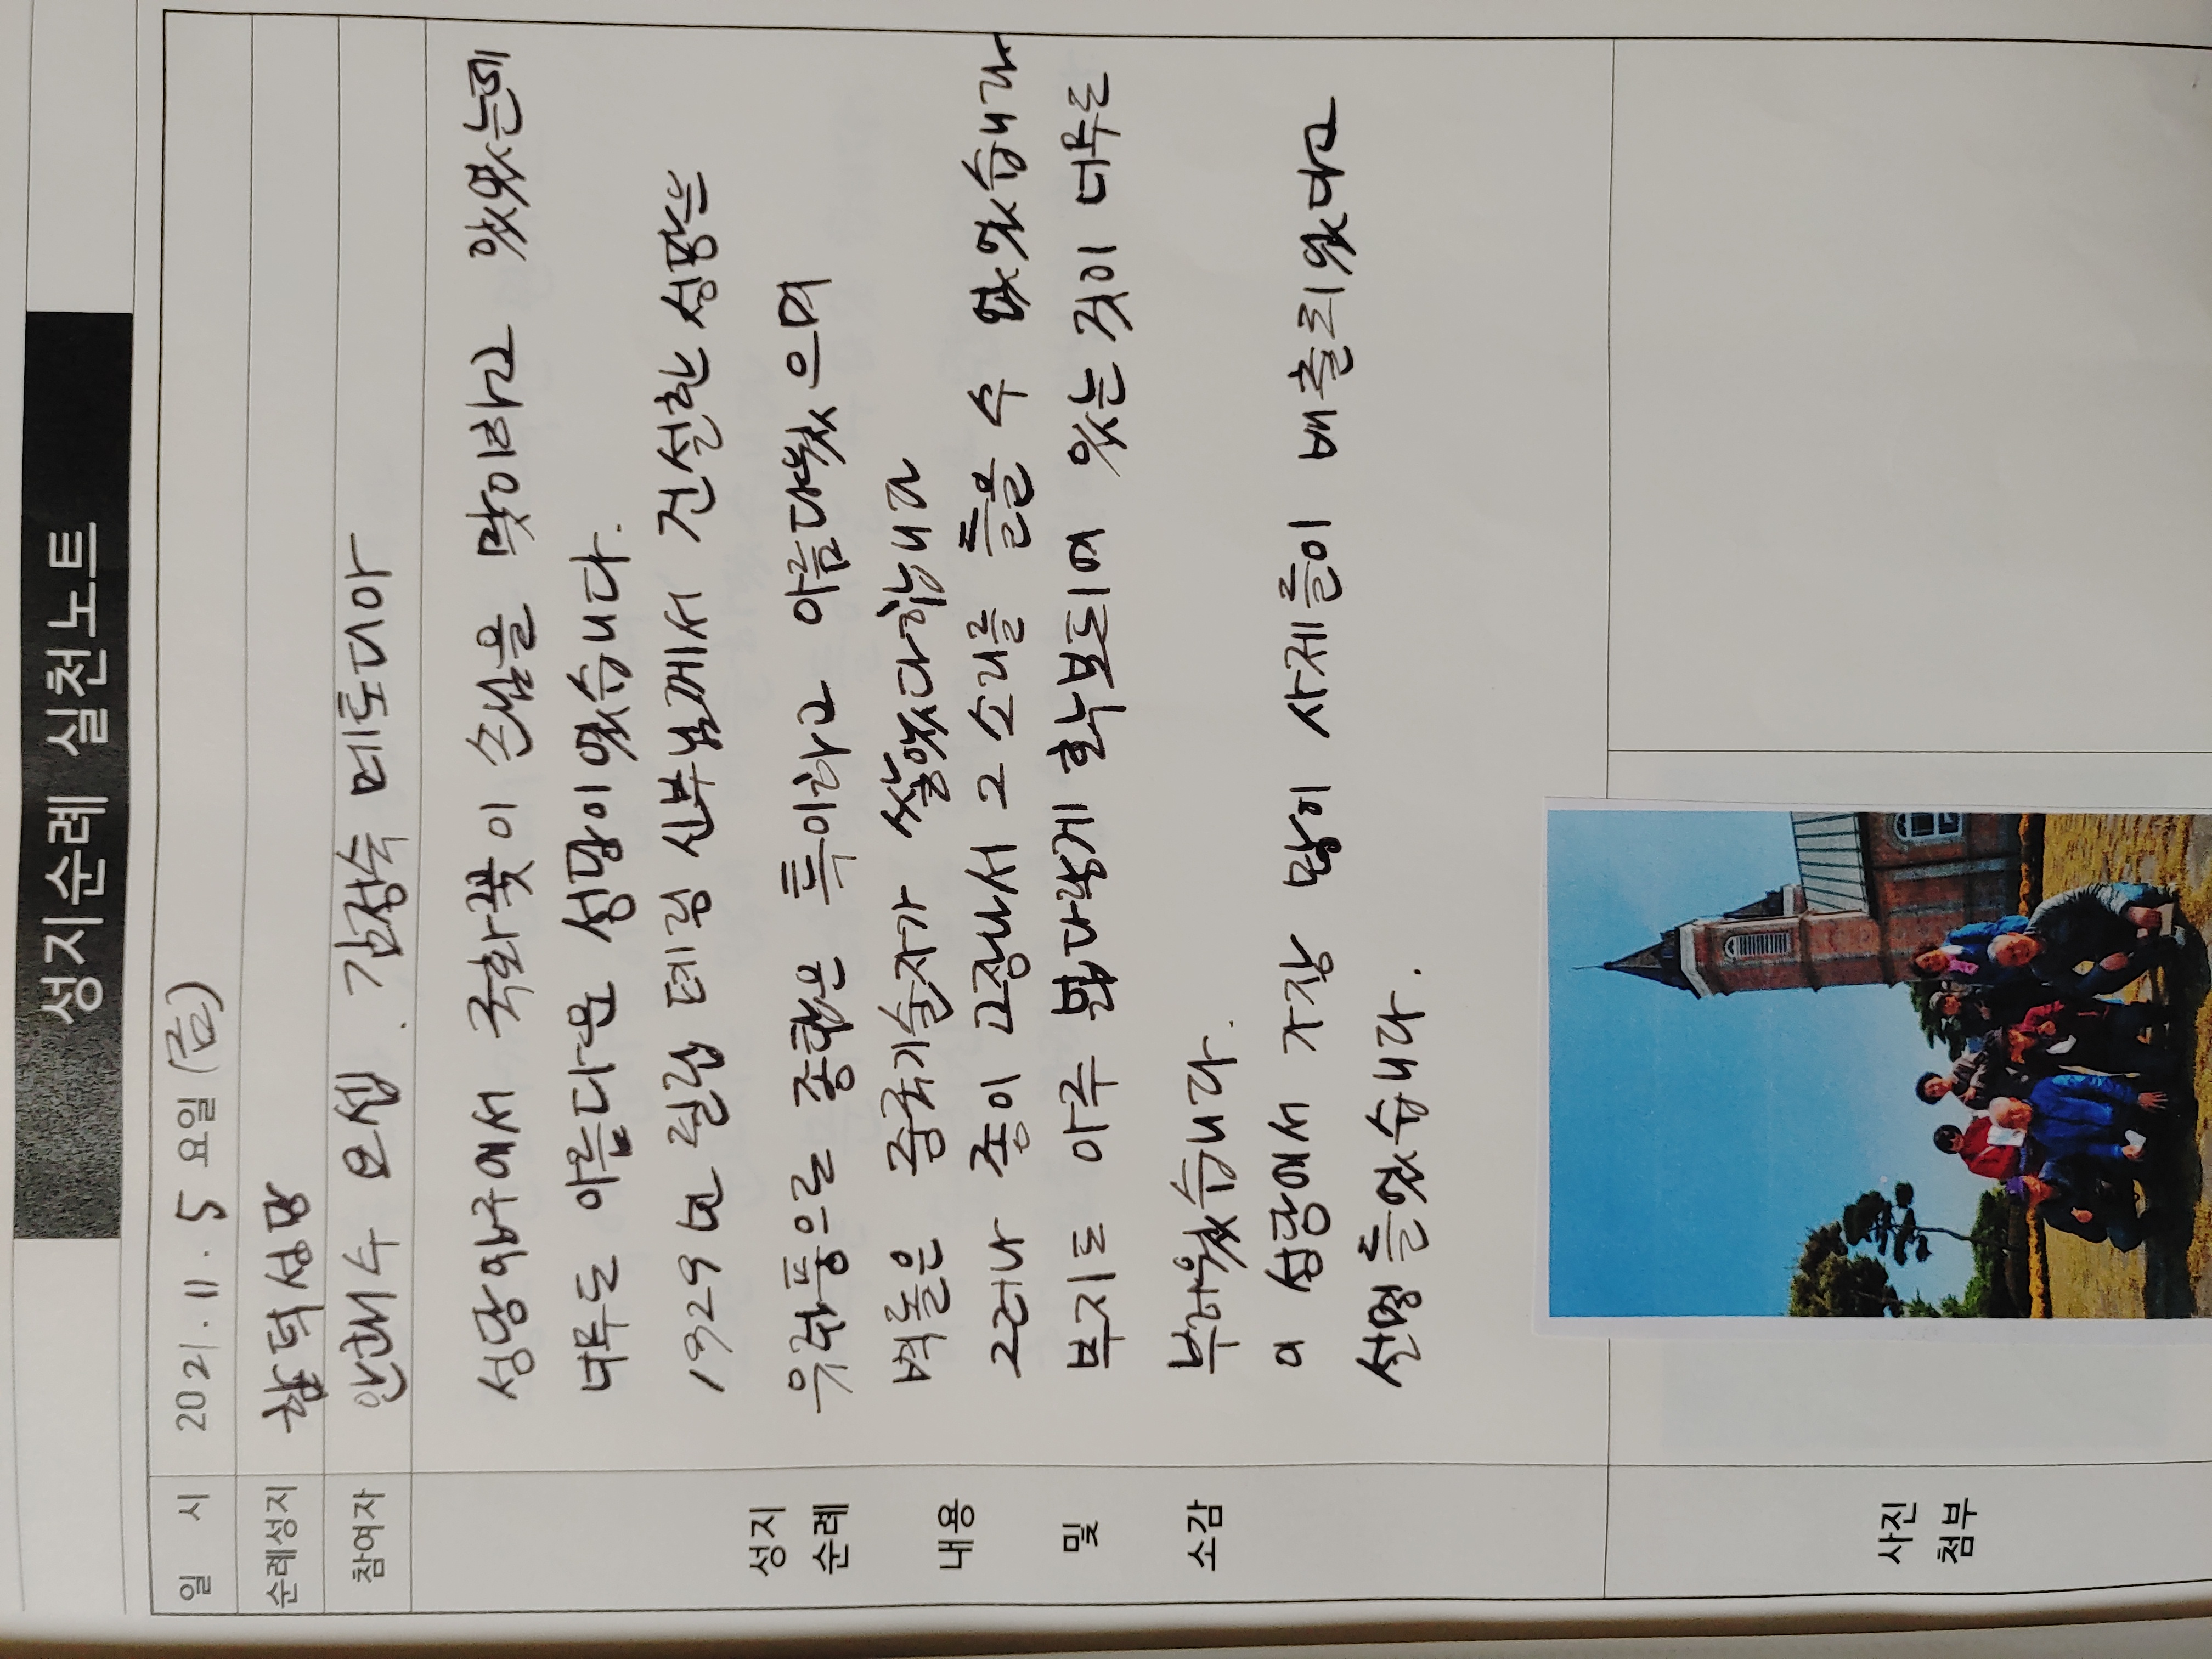 성지순례 실천노트
일 시 2021. 11. 5 요일 (금)
순례성지 합덕성당
참여자 안내수 요셉. 김정숙 메토디아
성지
순례
내용
및
소감
성당입구에서 국화꽃이 손님을 맞이하고 있었는데
너무도 아름다운 성당이었습니다.
1929년 필립 테렝 신부님께서 건설한 성당은
유럽풍으로 종탑은 특이하고 아름다웠으며
벽돌은 중국기술자가 쌓았다합니다
그러나 종이 고장나서 그 소리를 들을 수 없었습니다
부지도 아주 넓다랗게 확보되어 있는 것이 너무도
부러웠습니다.
이 성당에서 가장 많이 사제들이 배출되었다고
설명 들었습니다.
사진
첨부